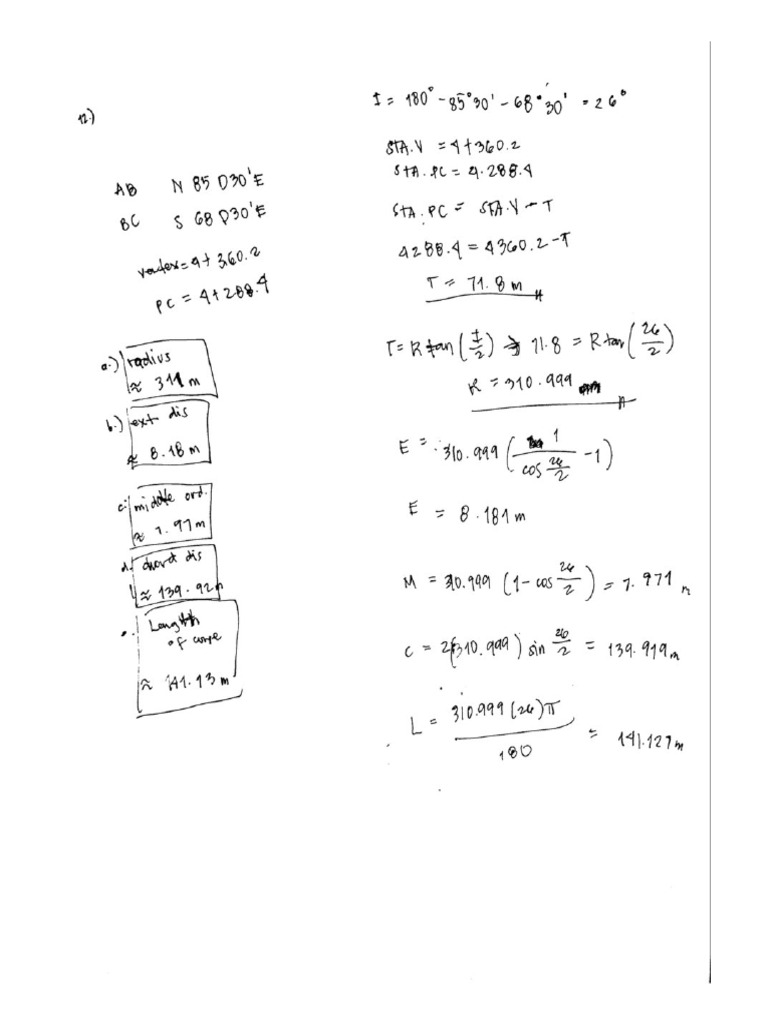 12.)
AB N 85 D30'E
BC S 68 D30'E
vertex = 4+360.2
PC = 4+288.4
a.) radius
≈ 311 m
b.) ext dis
≈ 8.18 m
c. middle ord.
≈ 7.97 m
d. chord dis
L ≈ 139.92m
e. Length
of curve
≈ 141.13 m
I = 180° - 85°30' - 68°30' = 26°
STA.V = 4+360.2
STA.PC = 4.288.4
STA.PC = STA.V - T
4288.4 = 4360.2 - T
T = 71.8 m
T = R tan (I/2) → 71.8 = R tan (26/2)
R = 310.999
E = 310.999 (1/cos 26/2 - 1)
E = 8.181 m
M = 310.999 (1 - cos 26/2) = 7.971 m
C = 2(310.999) sin 26/2 = 139.919 m
L = 310.999 (26) π / 180 = 141.127 m